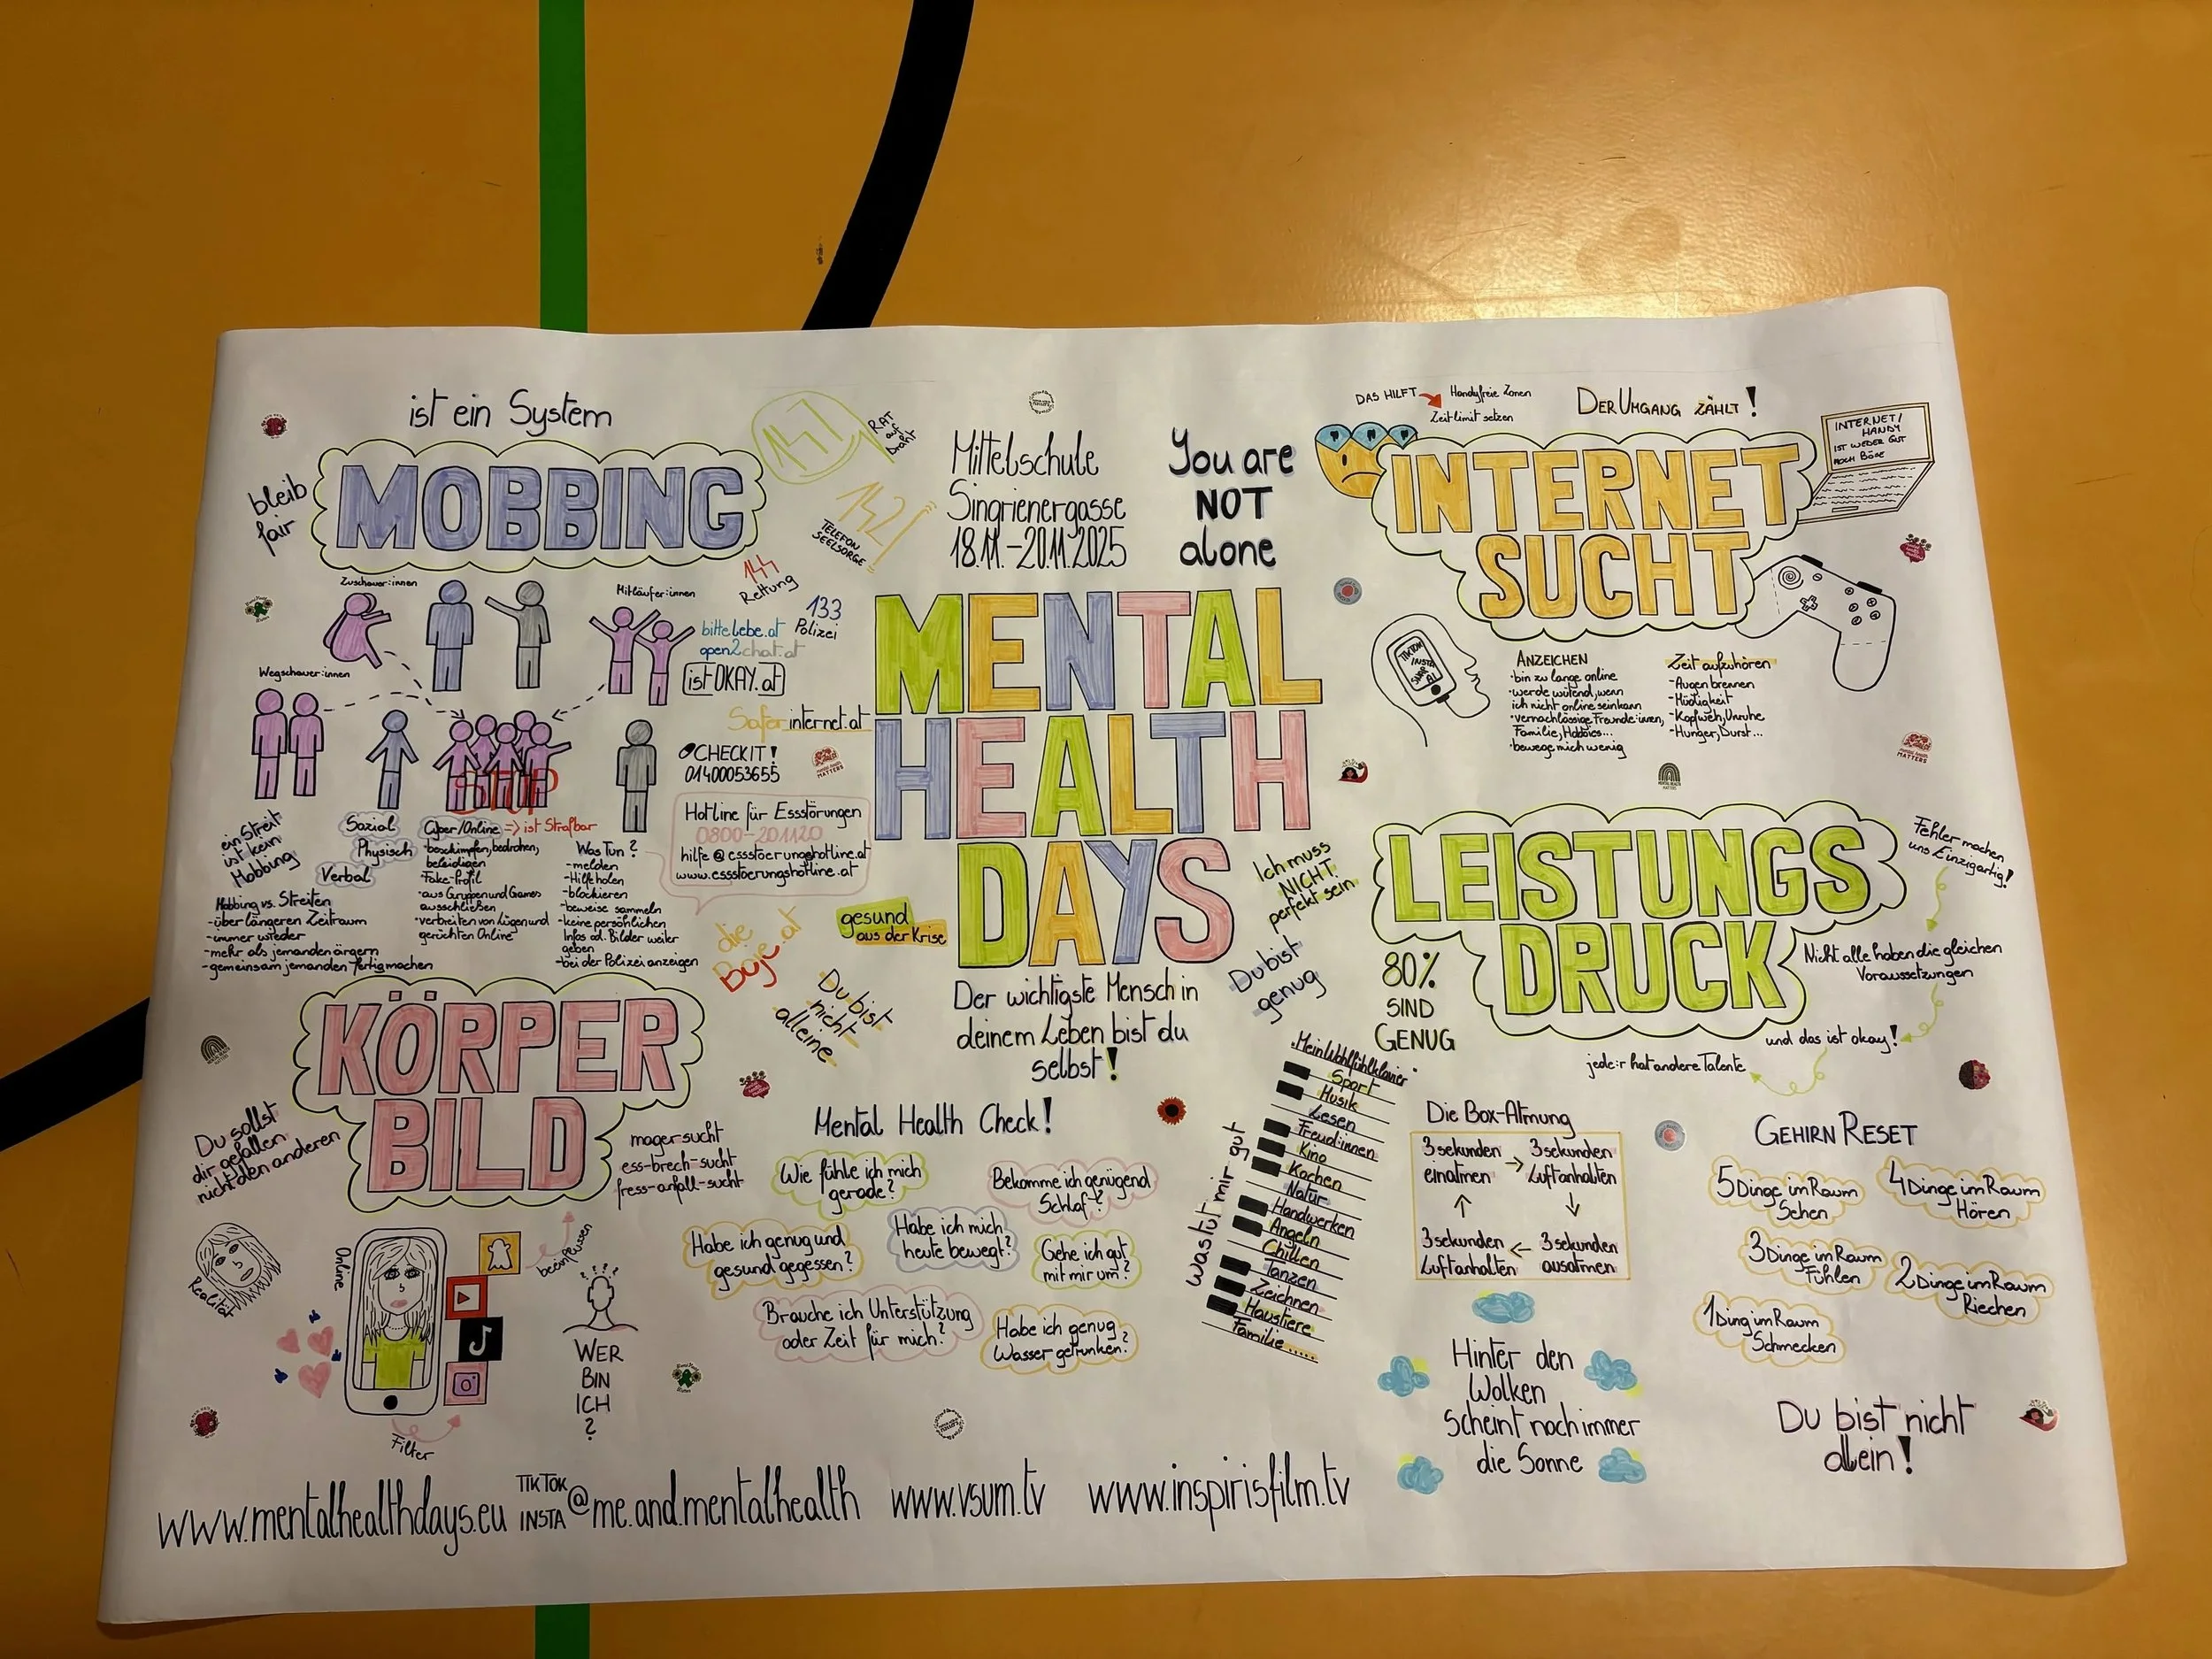 ist ein System
MOBBING
bleib
fair
147
RAT
auf
Draht
142
TELEFON
SEELSORGE
144
Rettung
133
Polizei
bittelebe.at
open2chat.at
istOKAY.at
Saferinternet.at
CHECKIT!
01400053655
Hotline für Essstörungen
0800-201120
hilfe@essstoerungshotline.at
www.essstoerungshotline.at
die
Boje.at
gesund
aus der Krise
Zuschauer:innen
Mitläufer:innen
Wegschauer:innen
STOP
ein Streit
ist kein
Mobbing
Sozial
Physisch
Verbal
Mobbing vs. Streiten
-über längeren Zeitraum
-immer wieder
-mehr als jemanden ärgern
-gemeinsam jemanden fertig machen
Cyber/Online => ist Strafbar
·beschimpfen, bedrohen,
beleidigen
·Fake-Profil
·aus Gruppen und Games
ausschließen
·verbreiten von Lügen und
gerüchten Online
Was Tun?
-melden
-Hilfe holen
-blockieren
-beweise sammeln
-keine persönlichen
Infos od. Bilder weiter
geben
-bei der Polizei anzeigen
Mittelschule
Singrienergasse
18.11.-20.11.2025
You are
NOT
alone
MENTAL
HEALTH
DAYS
Der wichtigste Mensch in
deinem Leben bist du
selbst!
Du bist
nicht
alleine
Ich muss
NICHT
perfekt sein
Du bist
genug
DAS HILFT
Handyfreie Zonen
Zeitlimit setzen
DER UMGANG ZÄHLT!
INTERNET/
HANDY
IST WEDER GUT
NOCH BÖSE
INTERNET
SUCHT
TIKTOK
INSTA
SNAP
AI
ANZEICHEN
·bin zu lange online
·werde wütend, wenn
ich nicht online sein kann
·vernachlässige Freunde:innen,
Familie, Hobbies...
·bewege mich wenig
Zeit aufzuhören
-Augen brennen
-Müdigkeit
-Kopfweh, Unruhe
-Hunger, Durst...
LEISTUNGS
DRUCK
Fehler machen
uns Einzigartig!
Nicht alle haben die gleichen
Voraussetzungen
und das ist okay!
jede:r hat andere Talente
80%
SIND
GENUG
KÖRPER
BILD
Du sollst
dir gefallen
nicht den anderen
mager-sucht
ess-brech-sucht
fress-anfall-sucht
beeinflussen
Realität
Online
Filter
WER
BIN
ICH
?
Mental Health Check!
Wie fühle ich mich
gerade?
Bekomme ich genügend
Schlaf?
Habe ich genug und
gesund gegessen?
Habe ich mich
heute bewegt?
Gehe ich gut
mit mir um?
Brauche ich Unterstützung
oder Zeit für mich?
Habe ich genug
Wasser getrunken?
"Mein Wohlfühlklavier"
Was tut mir gut
Sport
Musik
Lesen
Freud:innen
Kino
Kochen
Natur
Handwerken
Angeln
Chillen
Tanzen
Zeichnen
Haustiere
Familie.....
Die Box-Atmung
3 sekunden
einatmen
3 sekunden
Luft anhalten
3 sekunden
Luft anhalten
3 sekunden
ausatmen
GEHIRN RESET
5 Dinge im Raum
Sehen
4 Dinge im Raum
Hören
3 Dinge im Raum
Fühlen
2 Dinge im Raum
Riechen
1 Ding im Raum
Schmecken
Hinter den
Wolken
Scheint noch immer
die Sonne
Du bist nicht
allein!
www.mentalhealthdays.eu
TIKTOK
INSTA
@me.and.mentalhealth
www.vsum.tv
www.inspirisfilm.tv